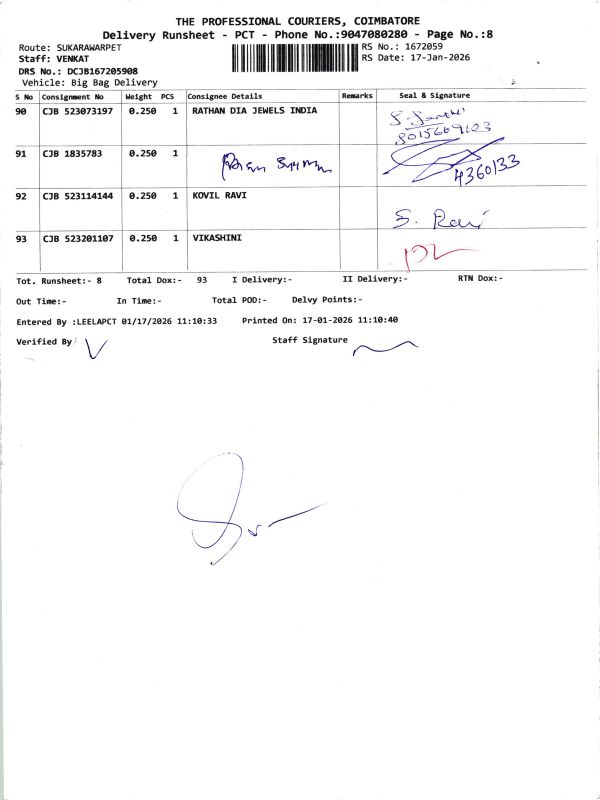 THE PROFESSIONAL COURIERS, COIMBATORE
Delivery Runsheet - PCT - Phone No.:9047080280 - Page No.:8
Route: SUKARAWARPET
RS No.: 1672059
Staff: VENKAT
RS Date: 17-Jan-2026
DRS No.: DCJB167205908
Vehicle: Big Bag Delivery
S No Consignment No Weight PCS Consignee Details Remarks Seal & Signature
90 CJB 523073197 0.250 1 RATHAN DIA JEWELS INDIA
91 CJB 1835783 0.250 1
4360133
92 CJB 523114144 0.250 1 KOVIL RAVI
S. Ravi
93 CJB 523201107 0.250 1 VIKASHINI
Tot. Runsheet:- 8 Total Dox:- 93 I Delivery:- II Delivery:- RTN Dox:-
Out Time:- In Time:- Total POD:- Delvy Points:-
Entered By :LEELAPCT 01/17/2026 11:10:33 Printed On: 17-01-2026 11:10:40
Verified By: Staff Signature